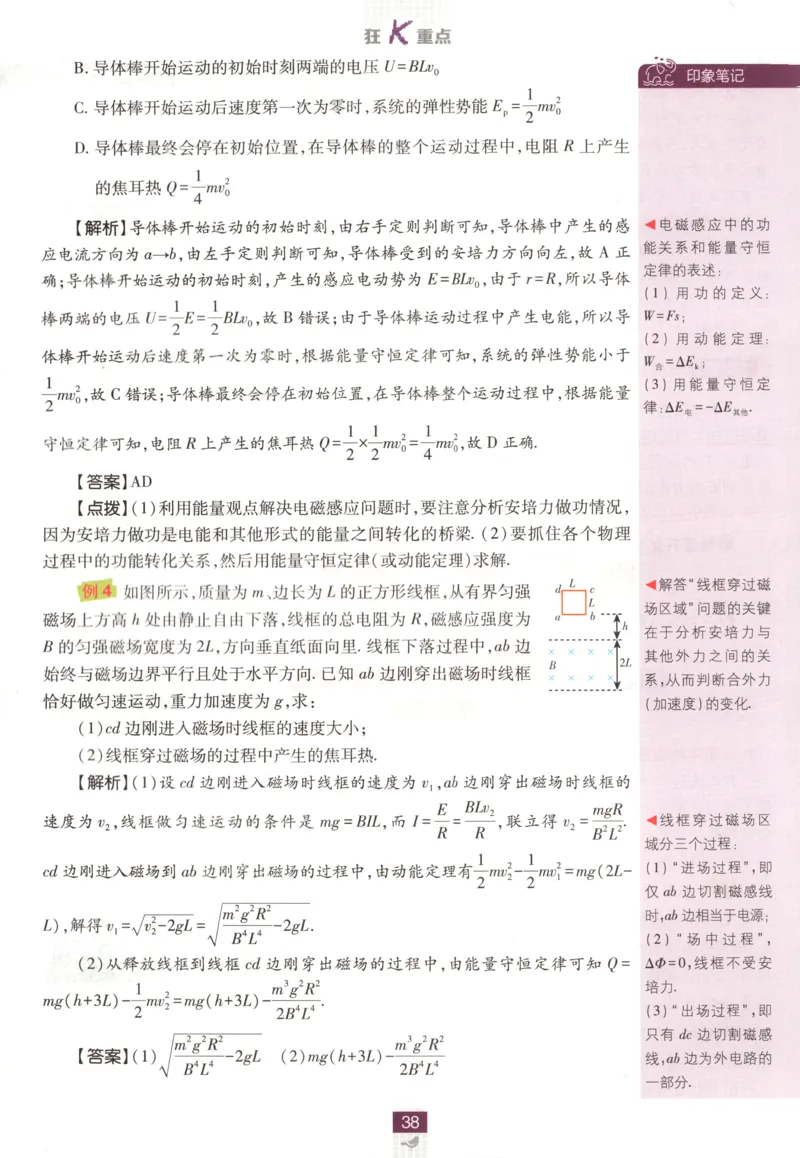 狂K重点
印象笔记
B. 导体棒开始运动的初始时刻两端的电压 U=BLv₀
C. 导体棒开始运动后速度第一次为零时,系统的弹性势能 Eₚ=1/2mv₀²
D. 导体棒最终会停在初始位置,在导体棒的整个运动过程中,电阻 R 上产生
的焦耳热 Q=1/4mv₀²
【解析】导体棒开始运动的初始时刻,由右手定则判断可知,导体棒中产生的感
应电流方向为 a→b,由左手定则判断可知,导体棒受到的安培力方向向左,故 A 正
确;导体棒开始运动的初始时刻,产生的感应电动势为 E=BLv₀,由于 r=R,所以导体
棒两端的电压 U=1/2E=1/2BLv₀,故 B 错误;由于导体棒运动过程中产生电能,所以导
体棒开始运动后速度第一次为零时,根据能量守恒定律可知,系统的弹性势能小于
1/2mv₀²,故 C 错误;导体棒最终会停在初始位置,在导体棒整个运动过程中,根据能量
守恒定律可知,电阻 R 上产生的焦耳热 Q=1/2×1/2mv₀²=1/4mv₀²,故 D 正确.
【答案】AD
【点拨】(1)利用能量观点解决电磁感应问题时,要注意分析安培力做功情况,
因为安培力做功是电能和其他形式的能量之间转化的桥梁. (2)要抓住各个物理
过程中的功能转化关系,然后用能量守恒定律(或动能定理)求解.
例4 如图所示,质量为 m、边长为 L 的正方形线框,从有界匀强
磁场上方高 h 处由静止自由下落,线框的总电阻为 R,磁感应强度为
B 的匀强磁场宽度为 2L,方向垂直纸面向里. 线框下落过程中,ab 边
始终与磁场边界平行且处于水平方向. 已知 ab 边刚穿出磁场时线框
恰好做匀速运动,重力加速度为 g,求:
d L c
L
a b
h
B
2L
(1)cd 边刚进入磁场时线框的速度大小;
(2)线框穿过磁场的过程中产生的焦耳热.
【解析】(1)设 cd 边刚进入磁场时线框的速度为 v₁,ab 边刚穿出磁场时线框的
速度为 v₂,线框做匀速运动的条件是 mg=BIL,而 I=E/R=BLv₂/R,联立得 v₂=mgR/B²L².
cd 边刚进入磁场到 ab 边刚穿出磁场的过程中,由动能定理有1/2mv₂²-1/2mv₁²=mg(2L-
L),解得 v₁=√(v₂²-2gL)=√(m²g²R²/B⁴L⁴-2gL).
(2)从释放线框到线框 cd 边刚穿出磁场的过程中,由能量守恒定律可知 Q=
mg(h+3L)-1/2mv₂²=mg(h+3L)-m³g²R²/2B⁴L⁴.
【答案】(1)√(m²g²R²/B⁴L⁴-2gL) (2)mg(h+3L)-m³g²R²/2B⁴L⁴
◀电磁感应中的功
能关系和能量守恒
定律的表述:
(1) 用功的定义:
W=Fs;
(2) 用动能定理:
W合=ΔEₖ;
(3) 用能量守恒定
律:ΔE电=-ΔE其他.
◀解答“线框穿过磁
场区域”问题的关键
在于分析安培力与
其他外力之间的关
系,从而判断合外力
(加速度)的变化.
◀线框穿过磁场区
域分三个过程:
(1)“进场过程”,即
仅 ab 边切割磁感线
时,ab 边相当于电源;
(2)“场中过程”,
ΔΦ=0,线框不受安
培力.
(3)“出场过程”,即
只有 dc 边切割磁感
线,ab 边为外电路的
一部分.
38